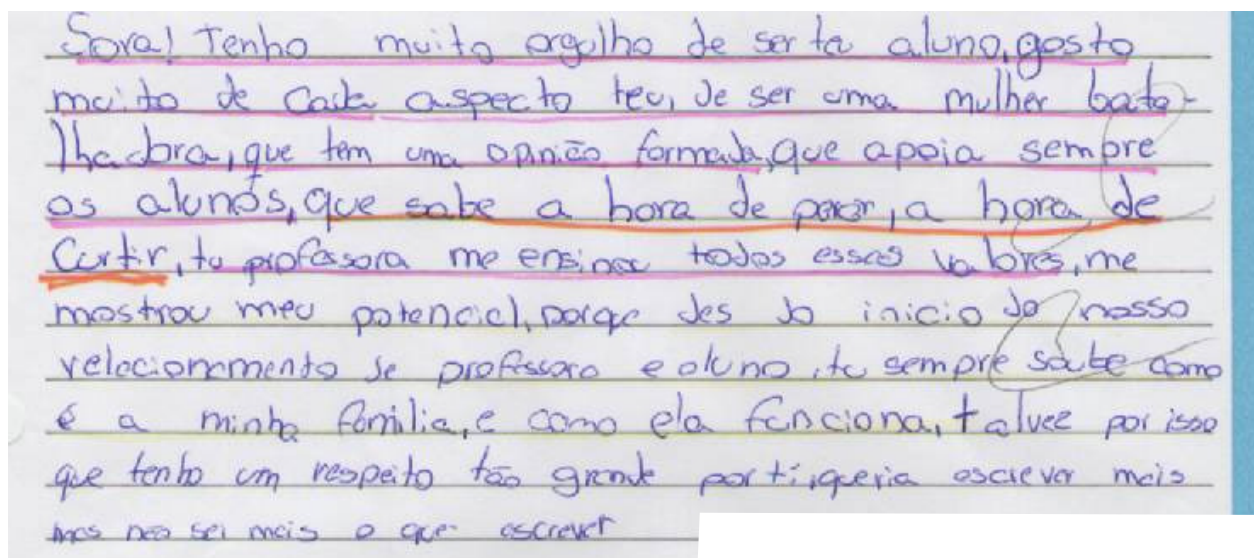 Sora! Tenho muito orgulho de ser teu aluno, gosto
muito de cada aspecto teu, de ser uma mulher bata-
lhadora, que tem uma opinião formada, que apoia sempre
os alunos, que sabe a hora de parar, a hora de
Curtir, tu professora me ensinou todos esses valores, me
mostrou meu potencial, porque des do inicio do nosso
relacionamento de professora e aluno, tu sempre soube como
é a minha familia, e como ela funciona, talvez por isso
que tenho um respeito tão grande por ti, queria escrever mais
mas não sei mais o que escrever